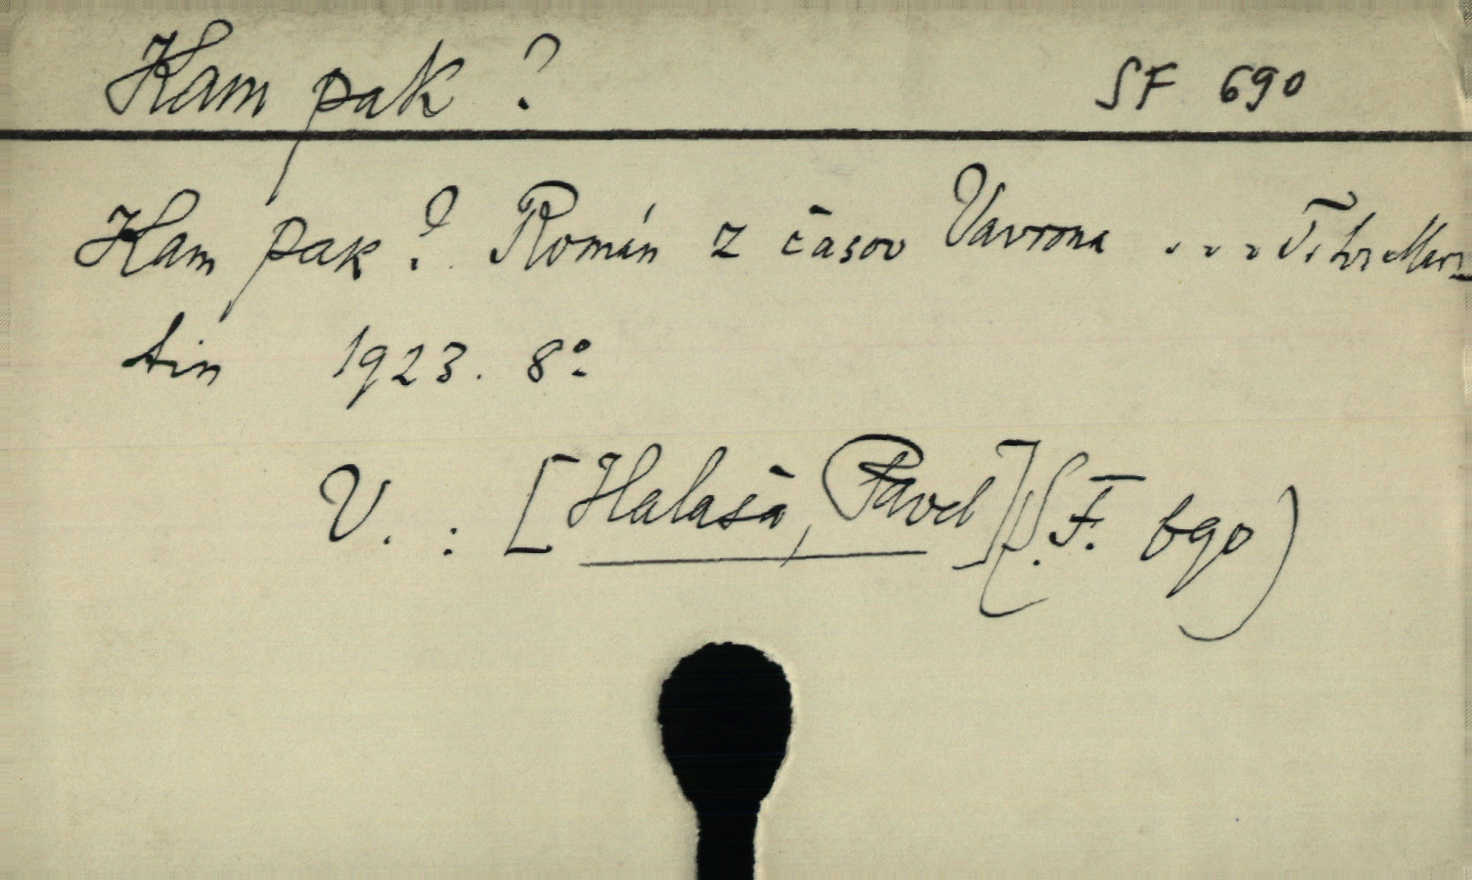 Kam pak ? SF 690
Kam pak ? Román z časov Vavrona ... T. Sv. Mar-
tin 1923. 8°
V. : [Halaša, Pavel] (S. F. 690)